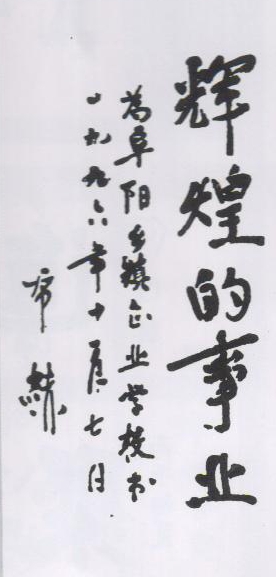 辉煌的事业
为阜阳乡镇企业学校书
一九九六年十一月七日
布赫